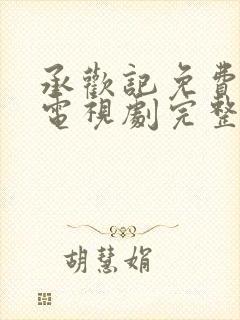 承歡記免費
電視劇完整
胡慧娟